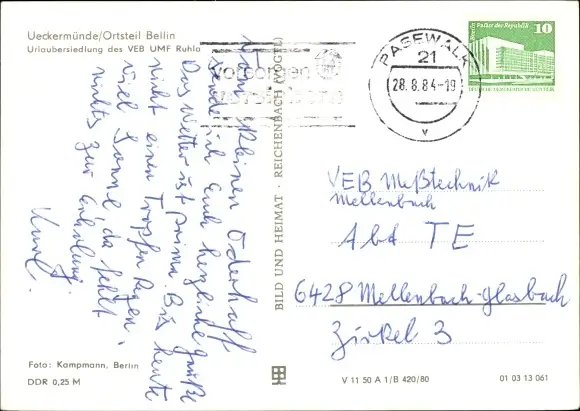 Ueckermünde/Ortsteil Bellin
Urlaubersiedlung des VEB UMF Ruhla
Vom kleinen Oderhaff
sende ich Euch herzliche Grüße
Das Wetter ist prima. Bis heute
nicht einen Tropfen Regen,
viel Sonne, da fehlt
nichts zur Erholung.
Kurt.
Foto: Kampmann, Berlin
DDR 0,25 M
BILD UND HEIMAT · REICHENBACH (VOGTL)
vorsorgen
PASEWALK
21
28.8.84-19
v
Berlin Palast der Republik 10
VEB Meßtechnik
Mellenbach
Abt TE
6428 Mellenbach-Glasbach
Zirkel 3
V 11 50 A 1/B 420/80
01 03 13 061